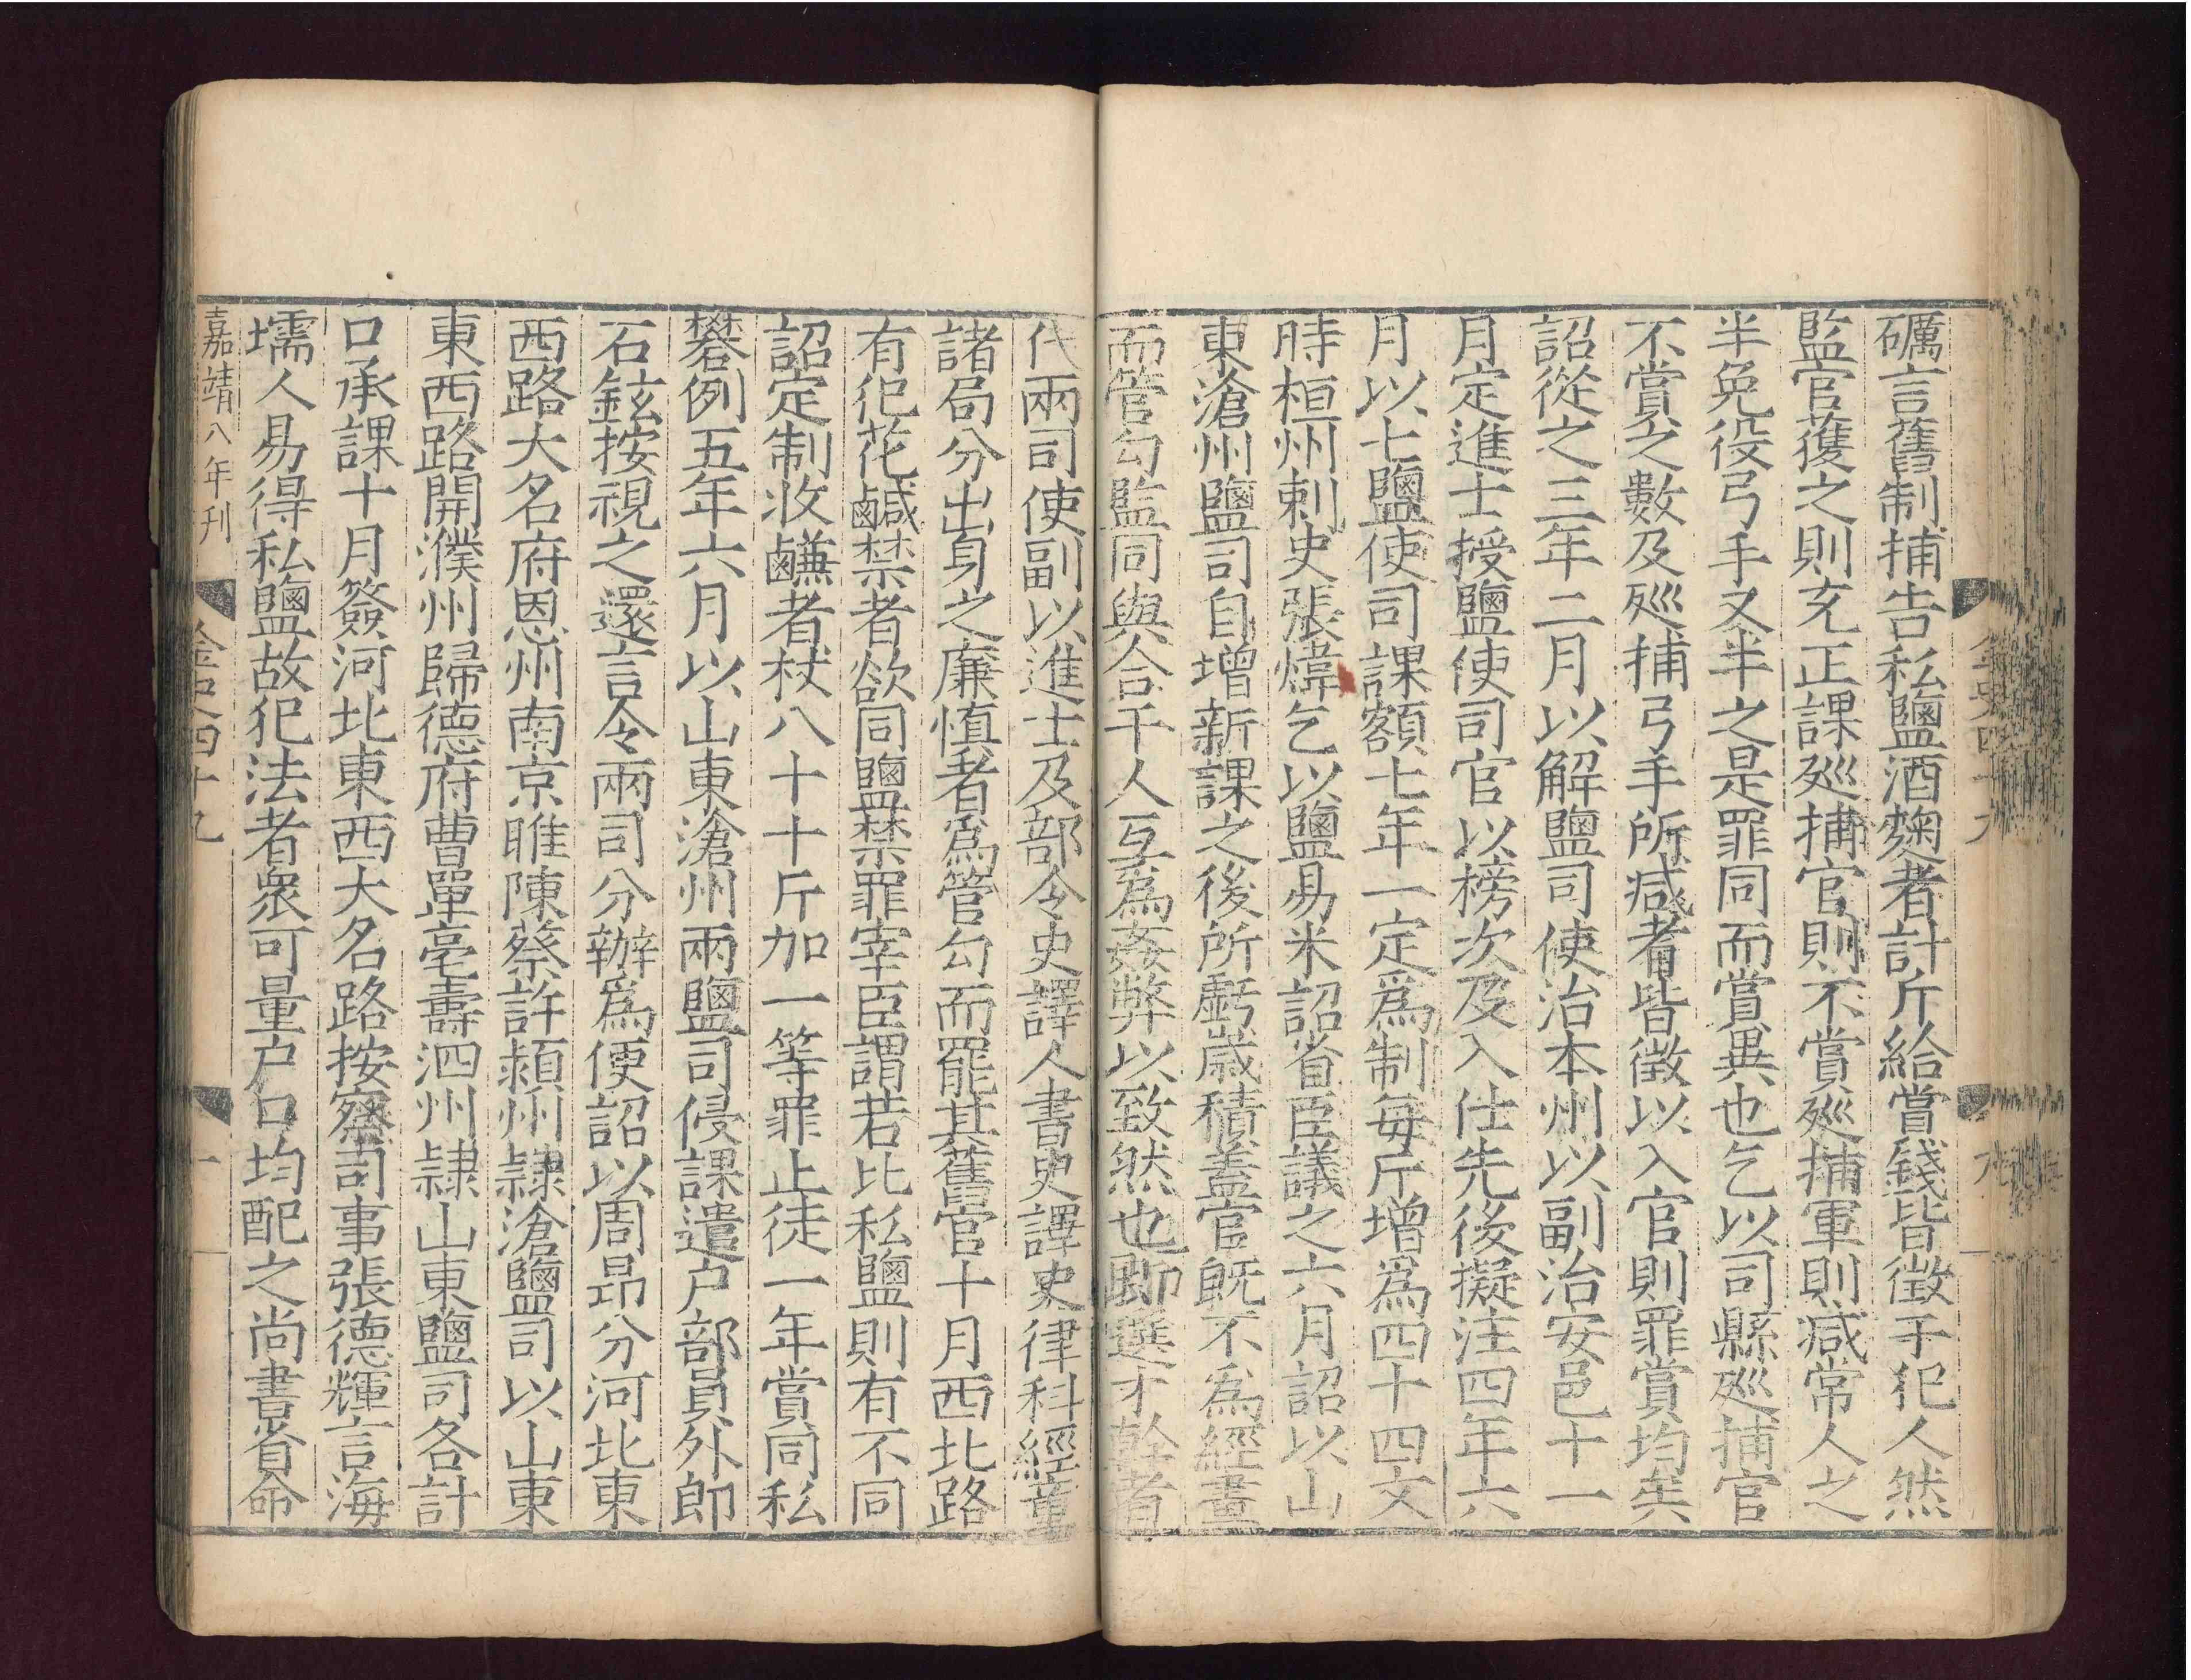 金史四十九
九
礪言舊制捕告私鹽酒麴者計斤給賞錢皆徵于犯人然
監官獲之則充正課廵捕官則不賞廵捕軍則减常人之
半免役弓手又半之是罪同而賞異也乞以司縣廵捕官
不賞之數及廵捕弓手所减者皆徵以入官則罪賞均矣
詔從之三年二月以解鹽司使治本州以副治安邑十一
月定進士授鹽使司官以榜次及入仕先後擬注四年六
月以七鹽使司課額七年一定爲制每斤增爲四十四文
時桓州刺史張煒乞以鹽易米詔省臣議之六月詔以山
東滄州鹽司自增新課之後所虧歲積蓋官既不爲經畫
而管勾監同與合干人互爲姦弊以致然也卽選才幹者
代兩司使副以進士及部令史譯人書史譯史律科經童
諸局分出身之廉慎者爲管勾而罷其舊官十月西北路
有犯花鹻禁者欲同鹽禁罪宰臣謂若比私鹽則有不同
詔定制收鹻者杖八十十斤加一等罪止徒一年賞同私
礬例五年六月以山東滄州兩鹽司侵課遣户部員外郎
石鉉按視之還言令兩司分辦爲便詔以周昂分河北東
西路大名府恩州南京睢陳蔡許頴州隷滄鹽司以山東
東西路開濮州歸德府曹單亳壽泗州隷山東鹽司各計
口承課十月簽河北東西大名路按察司事張德輝言海
壖人易得私鹽故犯法者衆可量户口均配之尚書省命
嘉靖八年刊
金史四十九